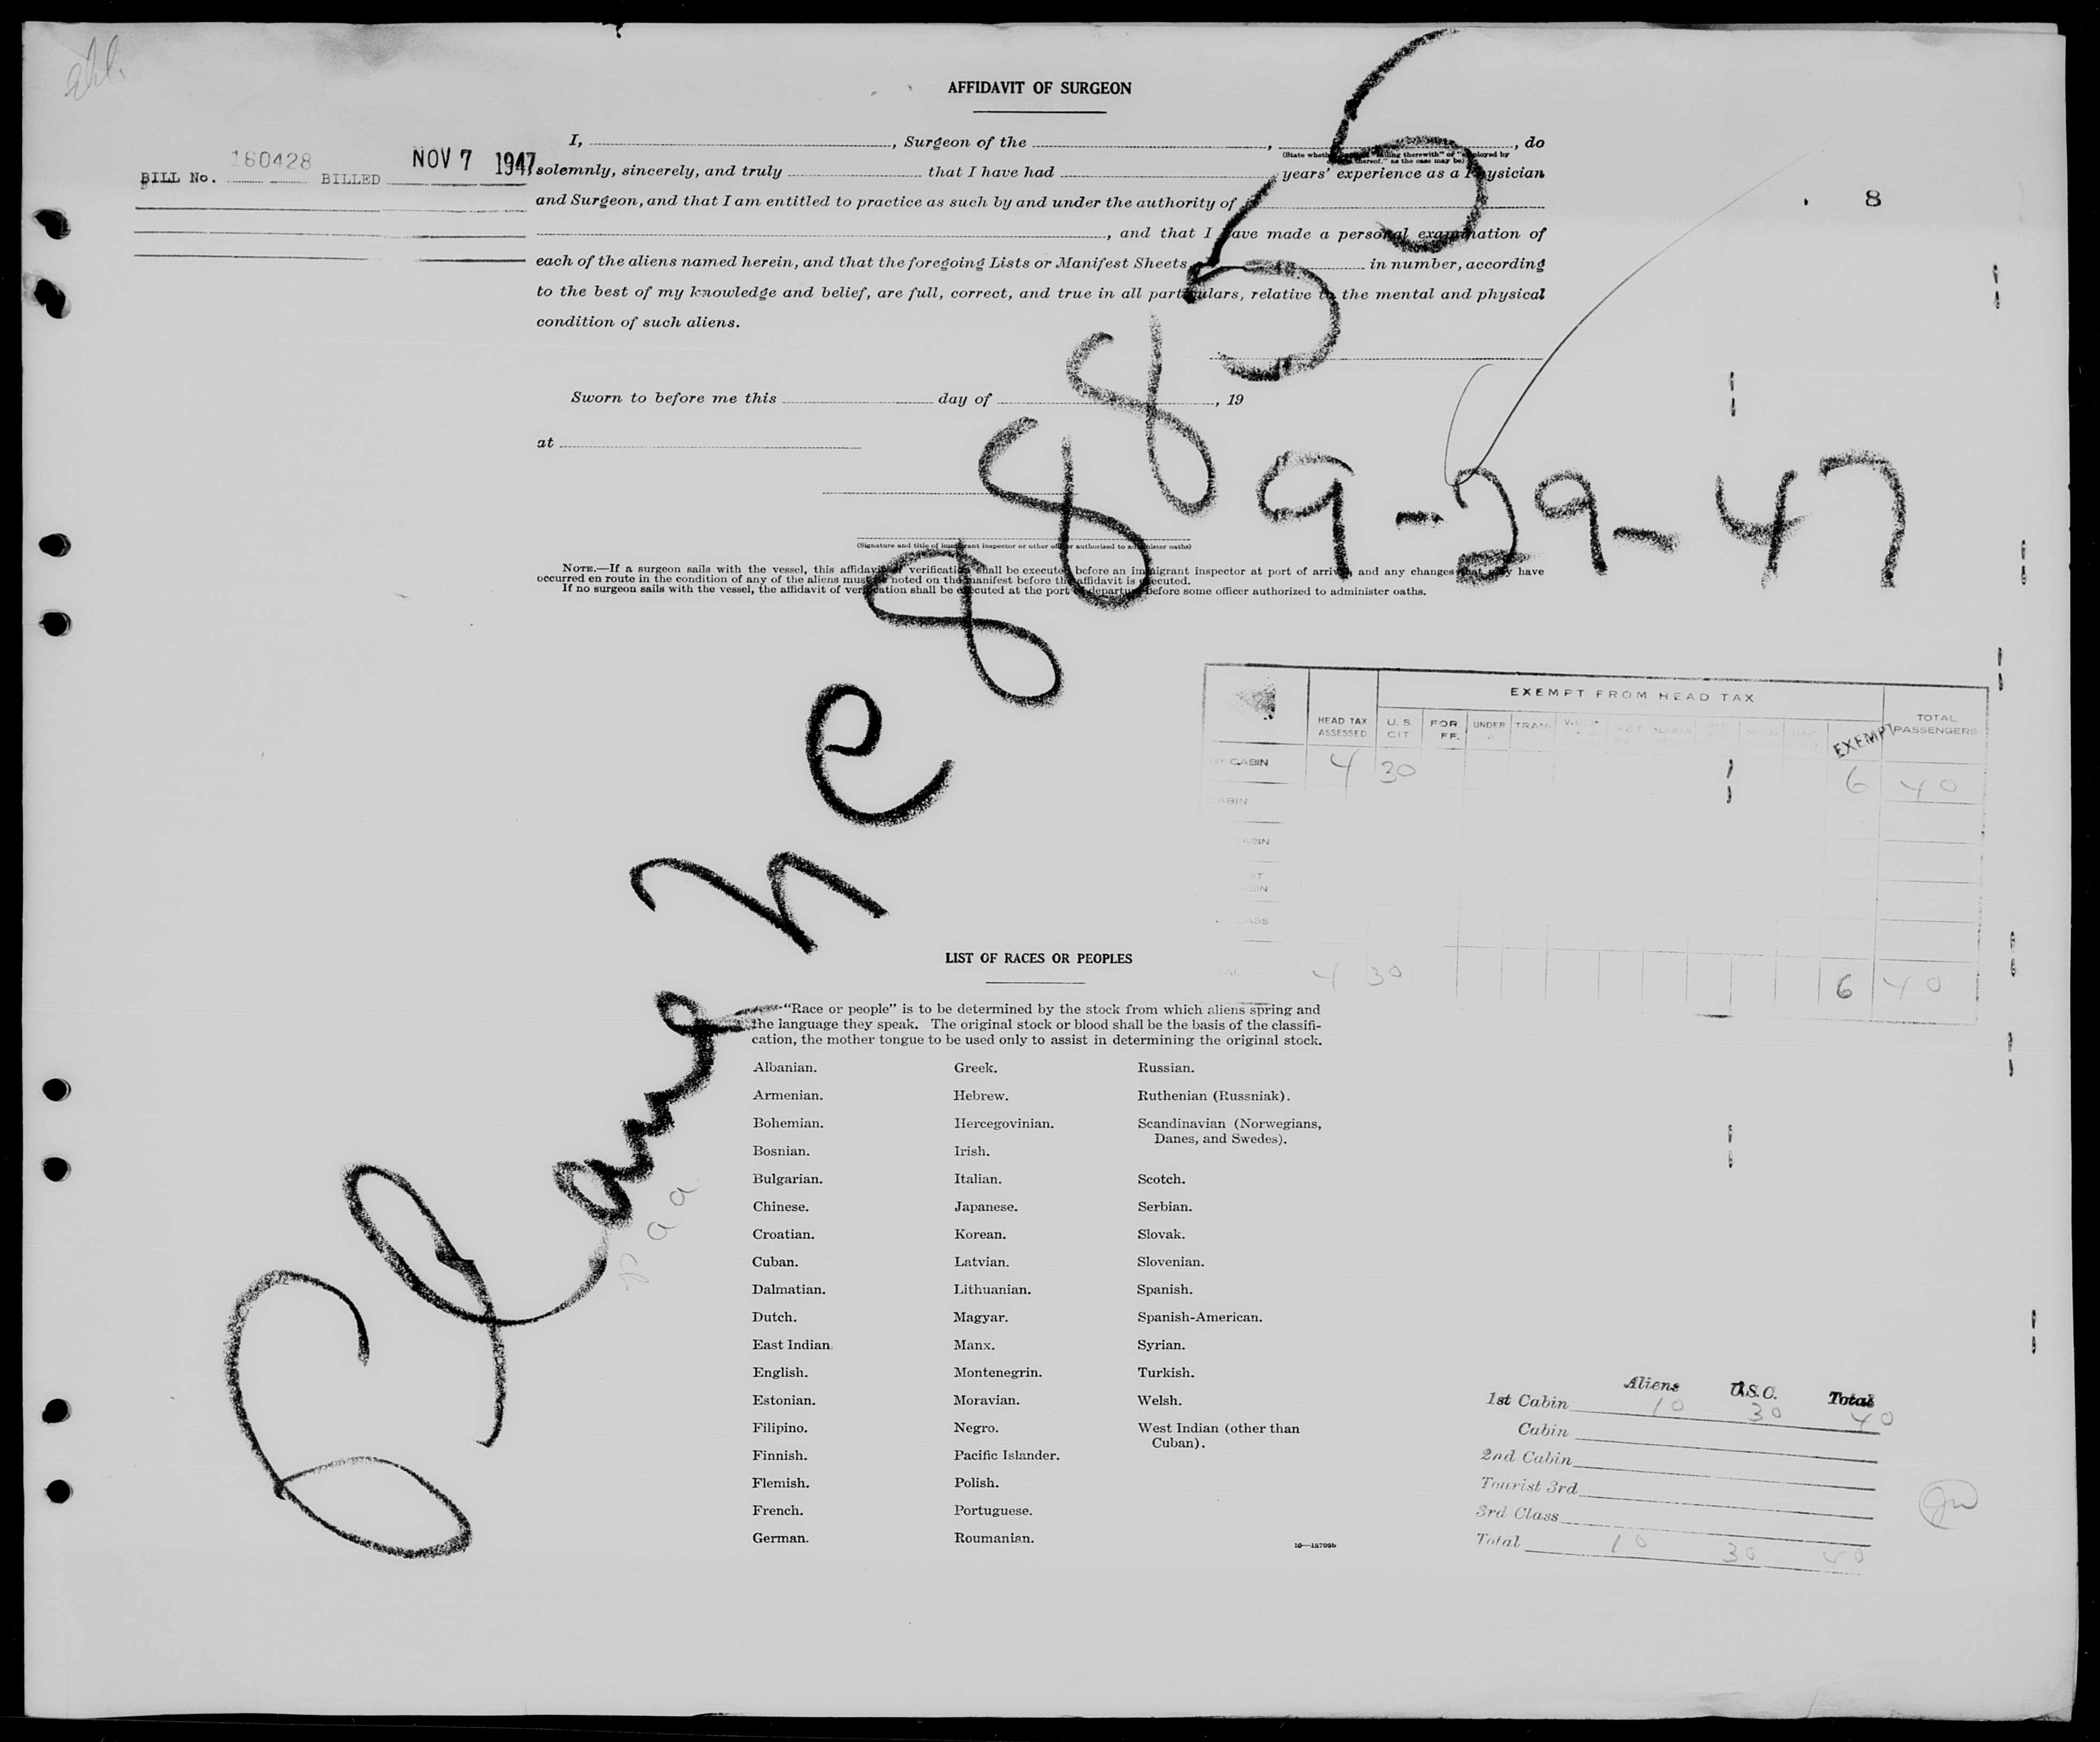 AFFIDAVIT OF SURGEON
I, , Surgeon of the , , do
(State whether "sailing therewith" or "employed by
thereof," as the case may be)
BILL No. 160428 BILLED NOV 7 1947
solemnly, sincerely, and truly that I have had years' experience as a Physician
and Surgeon, and that I am entitled to practice as such by and under the authority of
8
, and that I have made a personal examination of
each of the aliens named herein, and that the foregoing Lists or Manifest Sheets, in number, according
to the best of my knowledge and belief, are full, correct, and true in all particulars, relative to the mental and physical
condition of such aliens.
Sworn to before me this day of , 19
at
(Signature and title of immigrant inspector or other officer authorized to administer oaths)
NOTE.—If a surgeon sails with the vessel, this affidavit of verification shall be executed before an immigrant inspector at port of arrival, and any changes that may have
occurred en route in the condition of any of the aliens must be noted on the manifest before the affidavit is executed.
If no surgeon sails with the vessel, the affidavit of verification shall be executed at the port of departure before some officer authorized to administer oaths.
Plane
NC 88855
9-29-47
paa
EXEMPT FROM HEAD TAX
HEAD TAX ASSESSED U.S. CIT. FOR. FF. UNDER TRAN. EXEMPT TOTAL PASSENGERS
CABIN 4 30 6 40
CABIN
CABIN
CLASS
4 30 6 40
LIST OF RACES OR PEOPLES
"Race or people" is to be determined by the stock from which aliens spring and
the language they speak. The original stock or blood shall be the basis of the classifi-
cation, the mother tongue to be used only to assist in determining the original stock.
Albanian. Greek. Russian.
Armenian. Hebrew. Ruthenian (Russniak).
Bohemian. Hercegovinian. Scandinavian (Norwegians,
Danes, and Swedes).
Bosnian. Irish.
Bulgarian. Italian. Scotch.
Chinese. Japanese. Serbian.
Croatian. Korean. Slovak.
Cuban. Latvian. Slovenian.
Dalmatian. Lithuanian. Spanish.
Dutch. Magyar. Spanish-American.
East Indian. Manx. Syrian.
English. Montenegrin. Turkish.
Estonian. Moravian. Welsh.
Filipino. Negro. West Indian (other than
Cuban).
Finnish. Pacific Islander.
Flemish. Polish.
French. Portuguese.
German. Roumanian.
16—15709b
Aliens U.S.C. Total
1st Cabin 10 30 40
Cabin
2nd Cabin
Tourist 3rd
3rd Class
Total 10 30 40